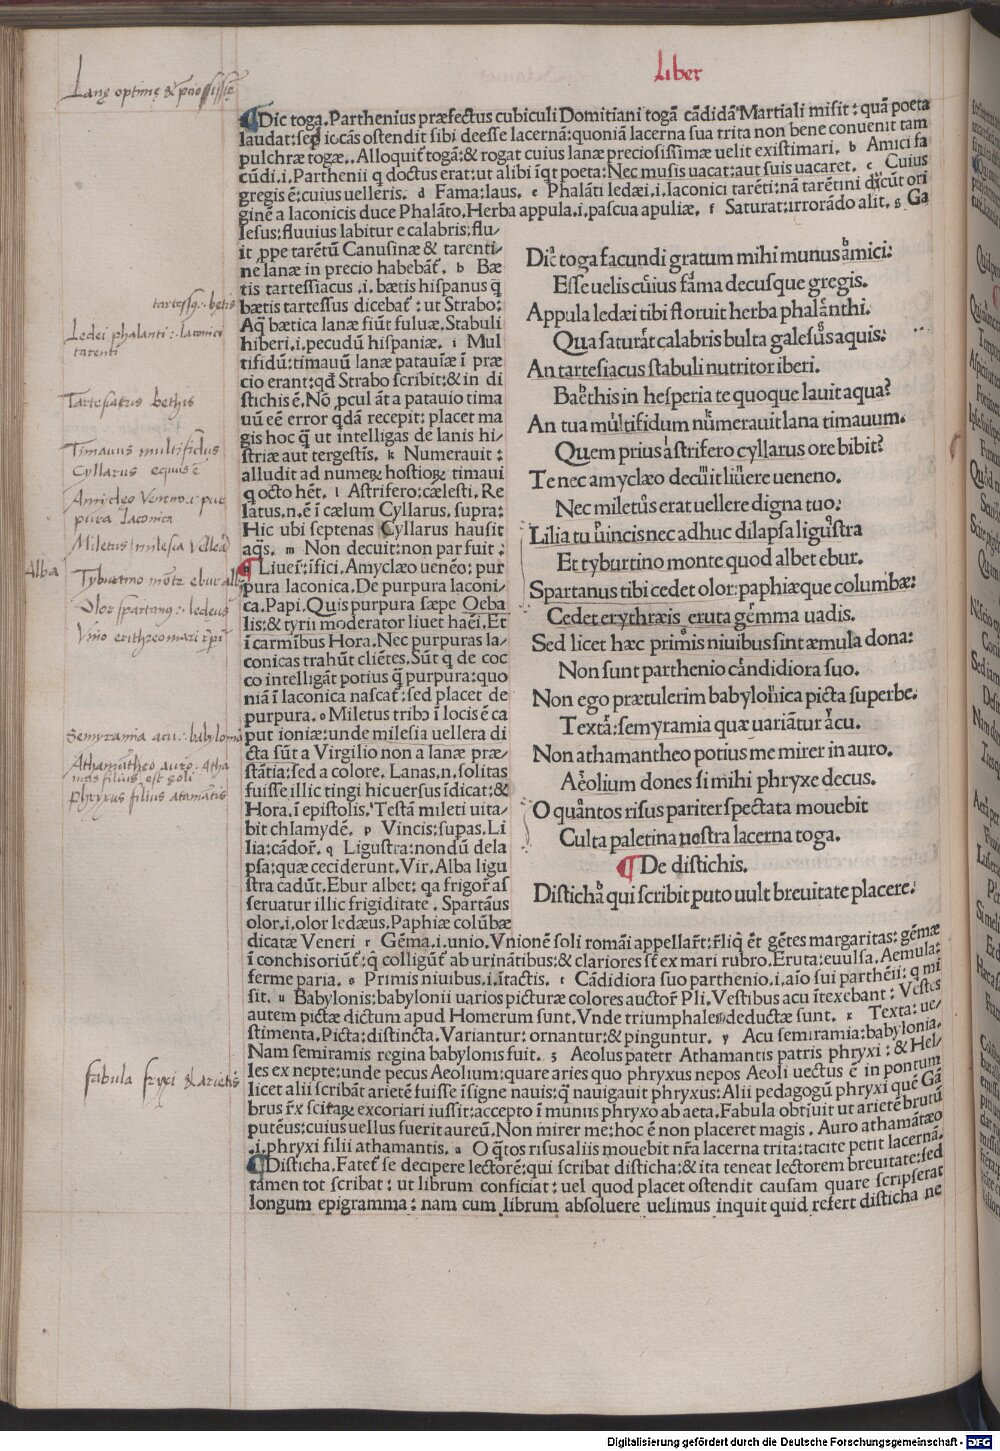 Liber
Lanę optimę &
¶Dic toga. Parthenius præfectus cubiculi Domitiani togā cādidā Martiali misit: quā poeta
laudat: sed iocās ostendit sibi deesse lacernā: quoniā lacerna sua trita non bene conuenit tam
pulchræ togæ. Alloquit̄ togā: & rogat cuius lanæ preciosissimæ uelit existimari. b Amici fa
cūdi .i. Parthenii q doctus erat: ut alibi īqt poeta: Nec musis uacat: aut suis uacaret. c Cuius
gregis ē: cuius uelleris. d Fama: laus. e Phalāti ledæi .i. laconici tarēti: nā tarētini dicūt ori
ginē a laconicis duce Phalāto. Herba appula .i. pascua apuliæ. f Saturat: irrorādo alit. g Ga
lesus: fluuius labitur e calabris: flu/
it ,ppe tarētū Canusinæ & tarenti/
ne lanæ in precio habebāt̄. h Bæ
tis tartessiacus .i. bætis hispanus q̄
bætis tartessus dicebat̄: ut Strabo:
Aq̄ bætica lanæ fiūt fuluæ. Stabuli
hiberi .i. pecudū hispaniæ. i Mul
tifidū: timauū lanæ patauiæ ī præ
cio erant: qd̄ Strabo scribit: & in di
stichis ē. Nō ,pcul āt a patauio tima
uū eē error qdā recepit; placet ma
gis hoc q̄ ut intelligas de lanis hi/
striæ aut tergestis. k Numerauit:
alludit ad numeꝝ hostioꝝ timaui
q octo hēt. l Astrifero: cælesti. Re
latus .n. ē ī cælum Cyllarus. supra:
Hic ubi septenas Cyllarus hausit
aq̄s. m Non decuit: non par fuit:
¶ Liuer̄: īfici. Amyclæo ueneo: pur
pura laconica. De purpura laconi/
ca. Papi. Quis purpura sæpe Oeba
lis: & tyrii moderator liuet haēi. Et
ī carmībus Hora. Nec purpuras la/
conicas trahūt cliētes. Sūt q de coc
co intelligāt potius q̄ purpura: quo
niā ī laconica nascat̄: sed placet de
purpura. o Miletus tribꝰ ī locis ē ca
put ioniæ: unde milesia uellera di
cta sūt a Virgilio non a lanæ præ/
stātia: sed a colore. Lanas .n. solitas
fuisse illic tingi hic uersus īdicat: &
Hora. ī epistolis. Testā mileti uita/
bit chlamydē. p Vincis: supas. Li
lia: cādor̄. q Ligustra: nondū dela
psa: quæ ceciderunt. Vir. Alba ligu
stra cadūt. Ebur albet: qa frigor̄ as
seruatur illic frigiditate. Spartāus
olor .i. olor ledæus. Paphiæ colūbæ
dicatæ Veneri r Gēma .i. unio. Vnionē soli romāi appellar̄t: r̄liq̄ ēt gētes margaritas: gēmæ
ī conchis oriūt̄: q colligūt̄ ab urinātibus: & clariores st̄ ex mari rubro. Eruta: euulsa. Aemula:
ferme paria. s Primis niuibus .i. ītactis. t Cādidiora suo parthenio .i. aīo sui parthēii: q mi
sit. u Babylonis: babylonii uarios picturæ colores auctor̄ Pli. Vestibus acu ītexebant: Vestes
autem pictæ dictum apud Homerum sunt. Vnde triumphales deductæ sunt. x Texta: ue/
stimenta. Picta: distincta. Variantur: ornantur: & pinguntur. y Acu semiramia: babylonia.
Nam semiramis regina babylonis fuit. z Aeolus patetr Athamantis patris phryxi: & Hel/
les ex nepte: unde pecus Aeolium: quare aries quo phryxus nepos Aeoli uectus ē in pontum
licet alii scribāt arietē fuisse īsigne nauis: q̄ nauigauit phryxus: Alii pedagogū phryxi quē Gā
brus r̄x scitaꝝ excoriari iussit: accepto ī munus phryxo ab aeta. Fabula obtiuit ut arietē brutū
putēus: cuius uellus fuerit aureū. Non mirer me: hoc ē non placeret magis. Auro athamātæo
.i. phryxi filii athamantis. a O q̄tos risus aliis mouebit nr̄a lacerna trita: tacite petit lacernā.
¶Disticha. Fatet̄ se decipere lectorē: qui scribat disticha: & ita teneat lectorem breuitate: sed
tamen tot scribat: ut librum conficiat: uel quod placet ostendit causam quare scripserat
longum epigramma: nam cum librum absoluere uelimus inquit quid refert disticha ne
Dic toga facundi gratum mihi munus amici:
Esse uelis cuius fama decusque gregis.
Appula ledæi tibi floruit herba phalanthi.
Qua saturat calabris bulta galesus aquis:
An tartesiacus stabuli nutritor iberi.
Baethis in hesperia te quoque lauit aqua?
An tua multifidum numerauit lana timauum.
Quem prius astrifero cyllarus ore bibit?
Te nec amyclæo decuit liuere ueneno.
Nec miletus erat uellere digna tuo:
Lilia tu uincis nec adhuc dilapsa ligustra
Et tyburtino monte quod albet ebur.
Spartanus tibi cedet olor: paphiæque columbæ:
Cedet erythræis eruta gemma uadis.
Sed licet hæc primis niuibus sint æmula dona:
Non sunt parthenio candidiora suo.
Non ego prætulerim babylonica picta superbe.
Texta: semyramia quæ uariātur acu.
Non athamantheo potius me mirer in auro.
Aeolium dones si mihi phryxe decus.
O quantos risus pariter spectata mouebit
Culta paletina nostra lacerna toga.
¶ De distichis.
Disticha qui scribit puto uult breuitate placere:
tartessꝰ: betis
Ledei phalanti: laconici
tarenti
Tartesacus bethis
Timauus multifidus
Cyllarus equus ē
Amicleo Veneno .i. pur
pura laconica
Miletus milesia Vellera
Alba
Tyburtino mōte ebur
Olor spartanꝰ: ledeus
Semyramia acu: babylonia
Athamātheo auro. Atha
mas filius est eoli
Phryxus filius atamātis
fabula fryxi & arietis
Digitalisierung gefördert durch die Deutsche Forschungsgemeinschaft - DFG